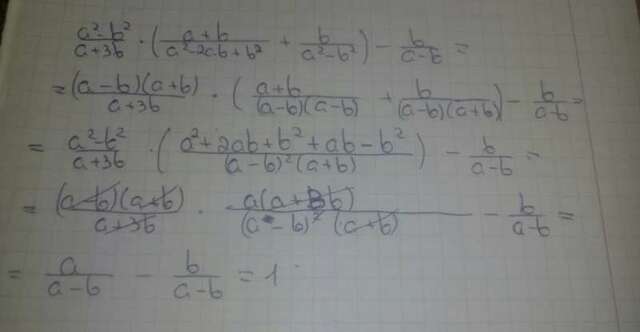 (a²-b²)/(a+3b) · ((a+b)/(a²-2ab+b²) + b/(a²-b²)) - b/(a-b) =
= ((a-b)(a+b))/(a+3b) · ((a+b)/((a-b)(a-b)) + b/((a-b)(a+b))) - b/(a-b) =
= (a²-b²)/(a+3b) · ((a²+2ab+b²+ab-b²)/((a-b)²(a+b))) - b/(a-b) =
= ((a-b)(a+b))/(a+3b) · (a(a+3b))/((a-b)²(a+b)) - b/(a-b) =
= a/(a-b) - b/(a-b) = 1